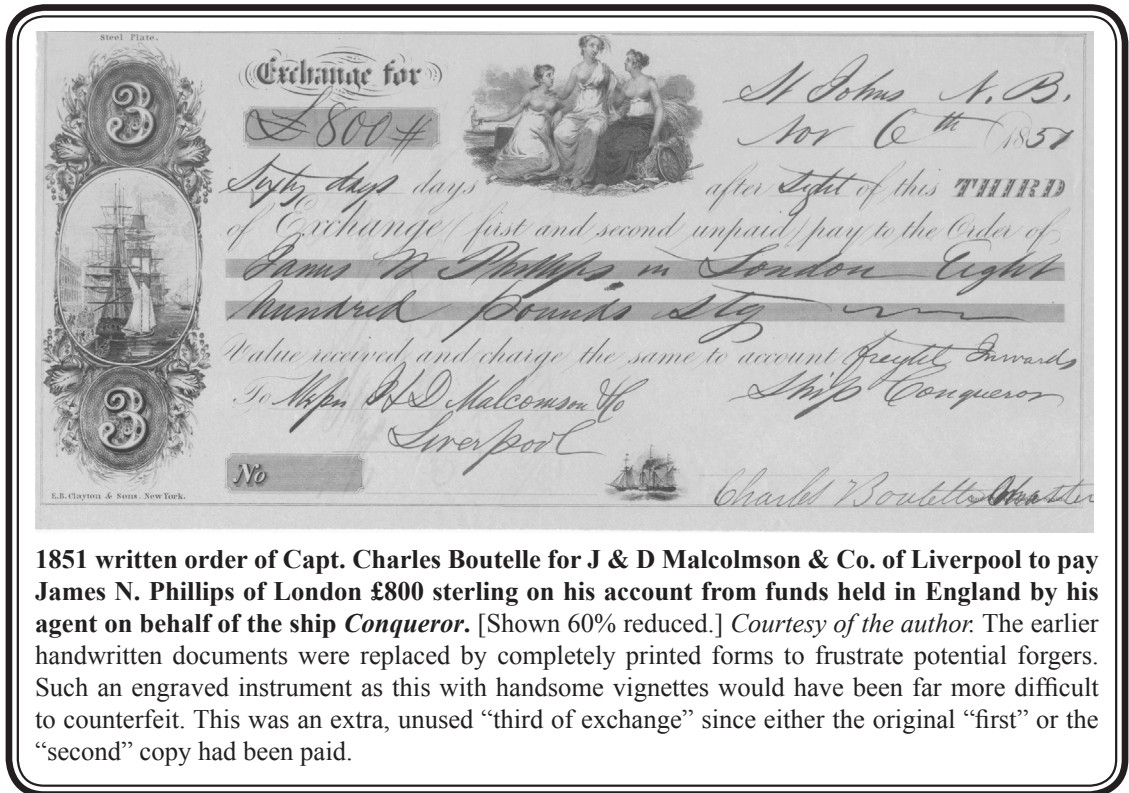 Steel Plate.
3
Exchange for
£800 #
St Johns N. B.
Nov 6th 1851
Sixty days days after Sight of this THIRD
of Exchange (first and second unpaid) pay to the Order of
James N Phillips in London Eight
Hundred pounds Stg
Value received and charge the same to account freight Inwards
To Messrs J & D Malcomson & Co Ship Conqueror
Liverpool
3
No
E.B. Clayton & Sons. New York.
Charles Boutelle Master
1851 written order of Capt. Charles Boutelle for J & D Malcolmson & Co. of Liverpool to pay
James N. Phillips of London £800 sterling on his account from funds held in England by his
agent on behalf of the ship Conqueror. [Shown 60% reduced.] Courtesy of the author. The earlier
handwritten documents were replaced by completely printed forms to frustrate potential forgers.
Such an engraved instrument as this with handsome vignettes would have been far more difficult
to counterfeit. This was an extra, unused “third of exchange” since either the original “first” or the
“second” copy had been paid.